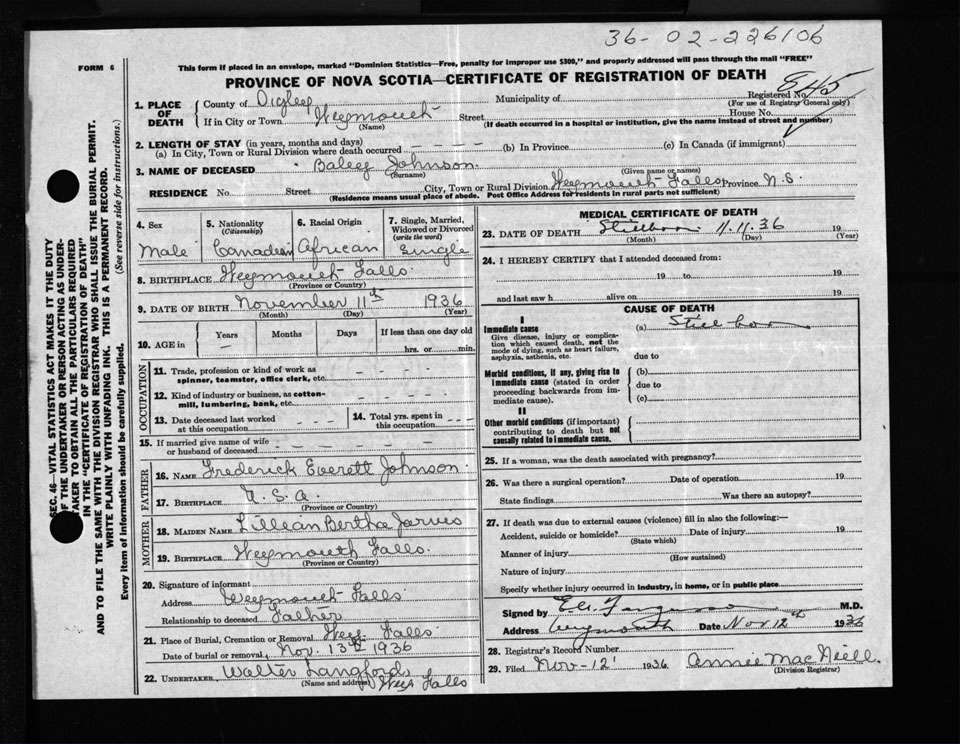 36-02-226106
FORM 6
This form if placed in an envelope, marked "Dominion Statistics—Free, penalty for improper use $300," and properly addressed will pass through the mail "FREE"
PROVINCE OF NOVA SCOTIA—CERTIFICATE OF REGISTRATION OF DEATH
845
1. PLACE OF DEATH
County of Digby Municipality of Registered No.
(For use of Registrar General only)
If in City or Town Weymouth Street House No.
(Name) (If death occurred in a hospital or institution, give the name instead of street and number)
2. LENGTH OF STAY (in years, months and days)
(a) In City, Town or Rural Division where death occurred - - - - (b) In Province (c) In Canada (if immigrant)
3. NAME OF DECEASED Johnson
(Surname) (Given name or names)
RESIDENCE No. Street City, Town or Rural Division Weymouth Falls Province N.S.
(Residence means usual place of abode. Post Office Address for residents in rural parts not sufficient)
4. Sex
Male
5. Nationality
(Citizenship)
Canadian
6. Racial Origin
African
7. Single, Married, Widowed or Divorced
(write the word)
Single
8. BIRTHPLACE Weymouth Falls
(Province or Country)
9. DATE OF BIRTH November 11th 1936
(Month) (Day) (Year)
10. AGE in Years Months Days If less than one day old
- hrs. or min.
OCCUPATION
11. Trade, profession or kind of work as
spinner, teamster, office clerk, etc. - - - - -
12. Kind of industry or business, as cotton-
mill, lumbering, bank, etc. - - - - -
13. Date deceased last worked
at this occupation - - - -
14. Total yrs. spent in
this occupation - - -
15. If married give name of wife
or husband of deceased - - - -
FATHER
16. NAME Frederick Everett Johnson
17. BIRTHPLACE U.S.A.
(Province or Country)
MOTHER
18. MAIDEN NAME Lillian Bertha Jarvis
19. BIRTHPLACE Weymouth Falls.
(Province or Country)
20. Signature of informant
Address Weymouth Falls
Relationship to deceased Father
21. Place of Burial, Cremation or Removal Wey. Falls
Date of burial or removal Nov. 13th 1936
22. UNDERTAKER Walter Langford
(Name and address) Wey Falls
MEDICAL CERTIFICATE OF DEATH
23. DATE OF DEATH Stillborn 11.11.36 19
(Month) (Day) (Year)
24. I HEREBY CERTIFY that I attended deceased from:
19 to 19
and last saw h alive on 19
CAUSE OF DEATH
I
Immediate cause
Give disease, injury or complica-
tion which caused death, not the
mode of dying, such as heart failure,
asphyxia, asthenia, etc.
(a) Stillborn
due to
Morbid conditions, if any, giving rise to
immediate cause (stated in order
proceeding backwards from im-
mediate cause).
(b)
due to
(c)
II
Other morbid conditions (if important)
contributing to death but not
causally related to immediate cause.
25. If a woman, was the death associated with pregnancy?
26. Was there a surgical operation? Date of operation 19
State findings Was there an autopsy?
27. If death was due to external causes (violence) fill in also the following:—
Accident, suicide or homicide? Date of injury 19
(State which)
Manner of injury
(How sustained)
Nature of injury
Specify whether injury occurred in industry, in home, or in public place
Signed by M.D.
Address Weymouth Date Nov 12 1936
28. Registrar's Record Number
29. Filed Nov-12 1936 Annie MacNiell.
(Division Registrar)
SEC. 46—VITAL STATISTICS ACT MAKES IT THE DUTY
OF THE UNDERTAKER OR PERSON ACTING AS UNDER-
TAKER TO OBTAIN ALL THE PARTICULARS REQUIRED
IN THE "CERTIFICATE OF REGISTRATION OF DEATH"
AND TO FILE THE SAME WITH THE DIVISION REGISTRAR WHO SHALL ISSUE THE BURIAL PERMIT.
WRITE PLAINLY WITH UNFADING INK. THIS IS A PERMANENT RECORD.
Every item of information should be carefully supplied. (See reverse side for instructions.)